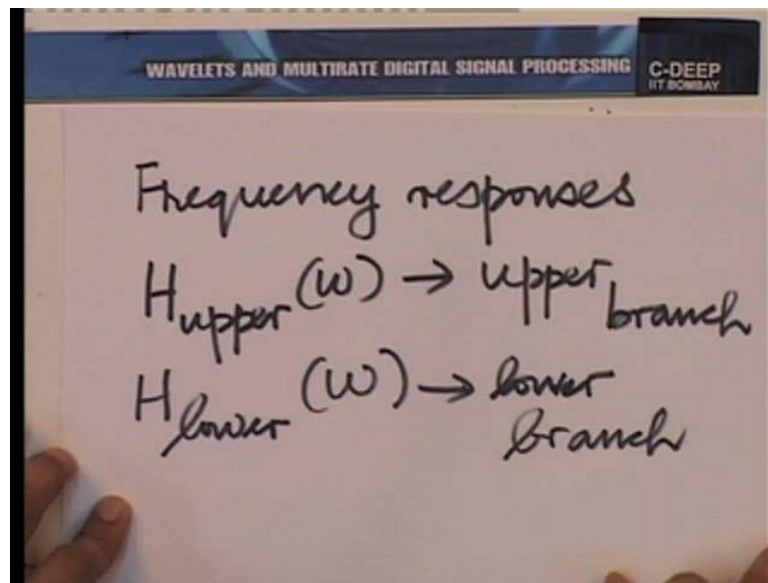 WAVELETS AND MULTIRATE DIGITAL SIGNAL PROCESSING
C-DEEP
IIT BOMBAY
Frequency responses
H upper (ω) → upper branch
H lower (ω) → lower branch